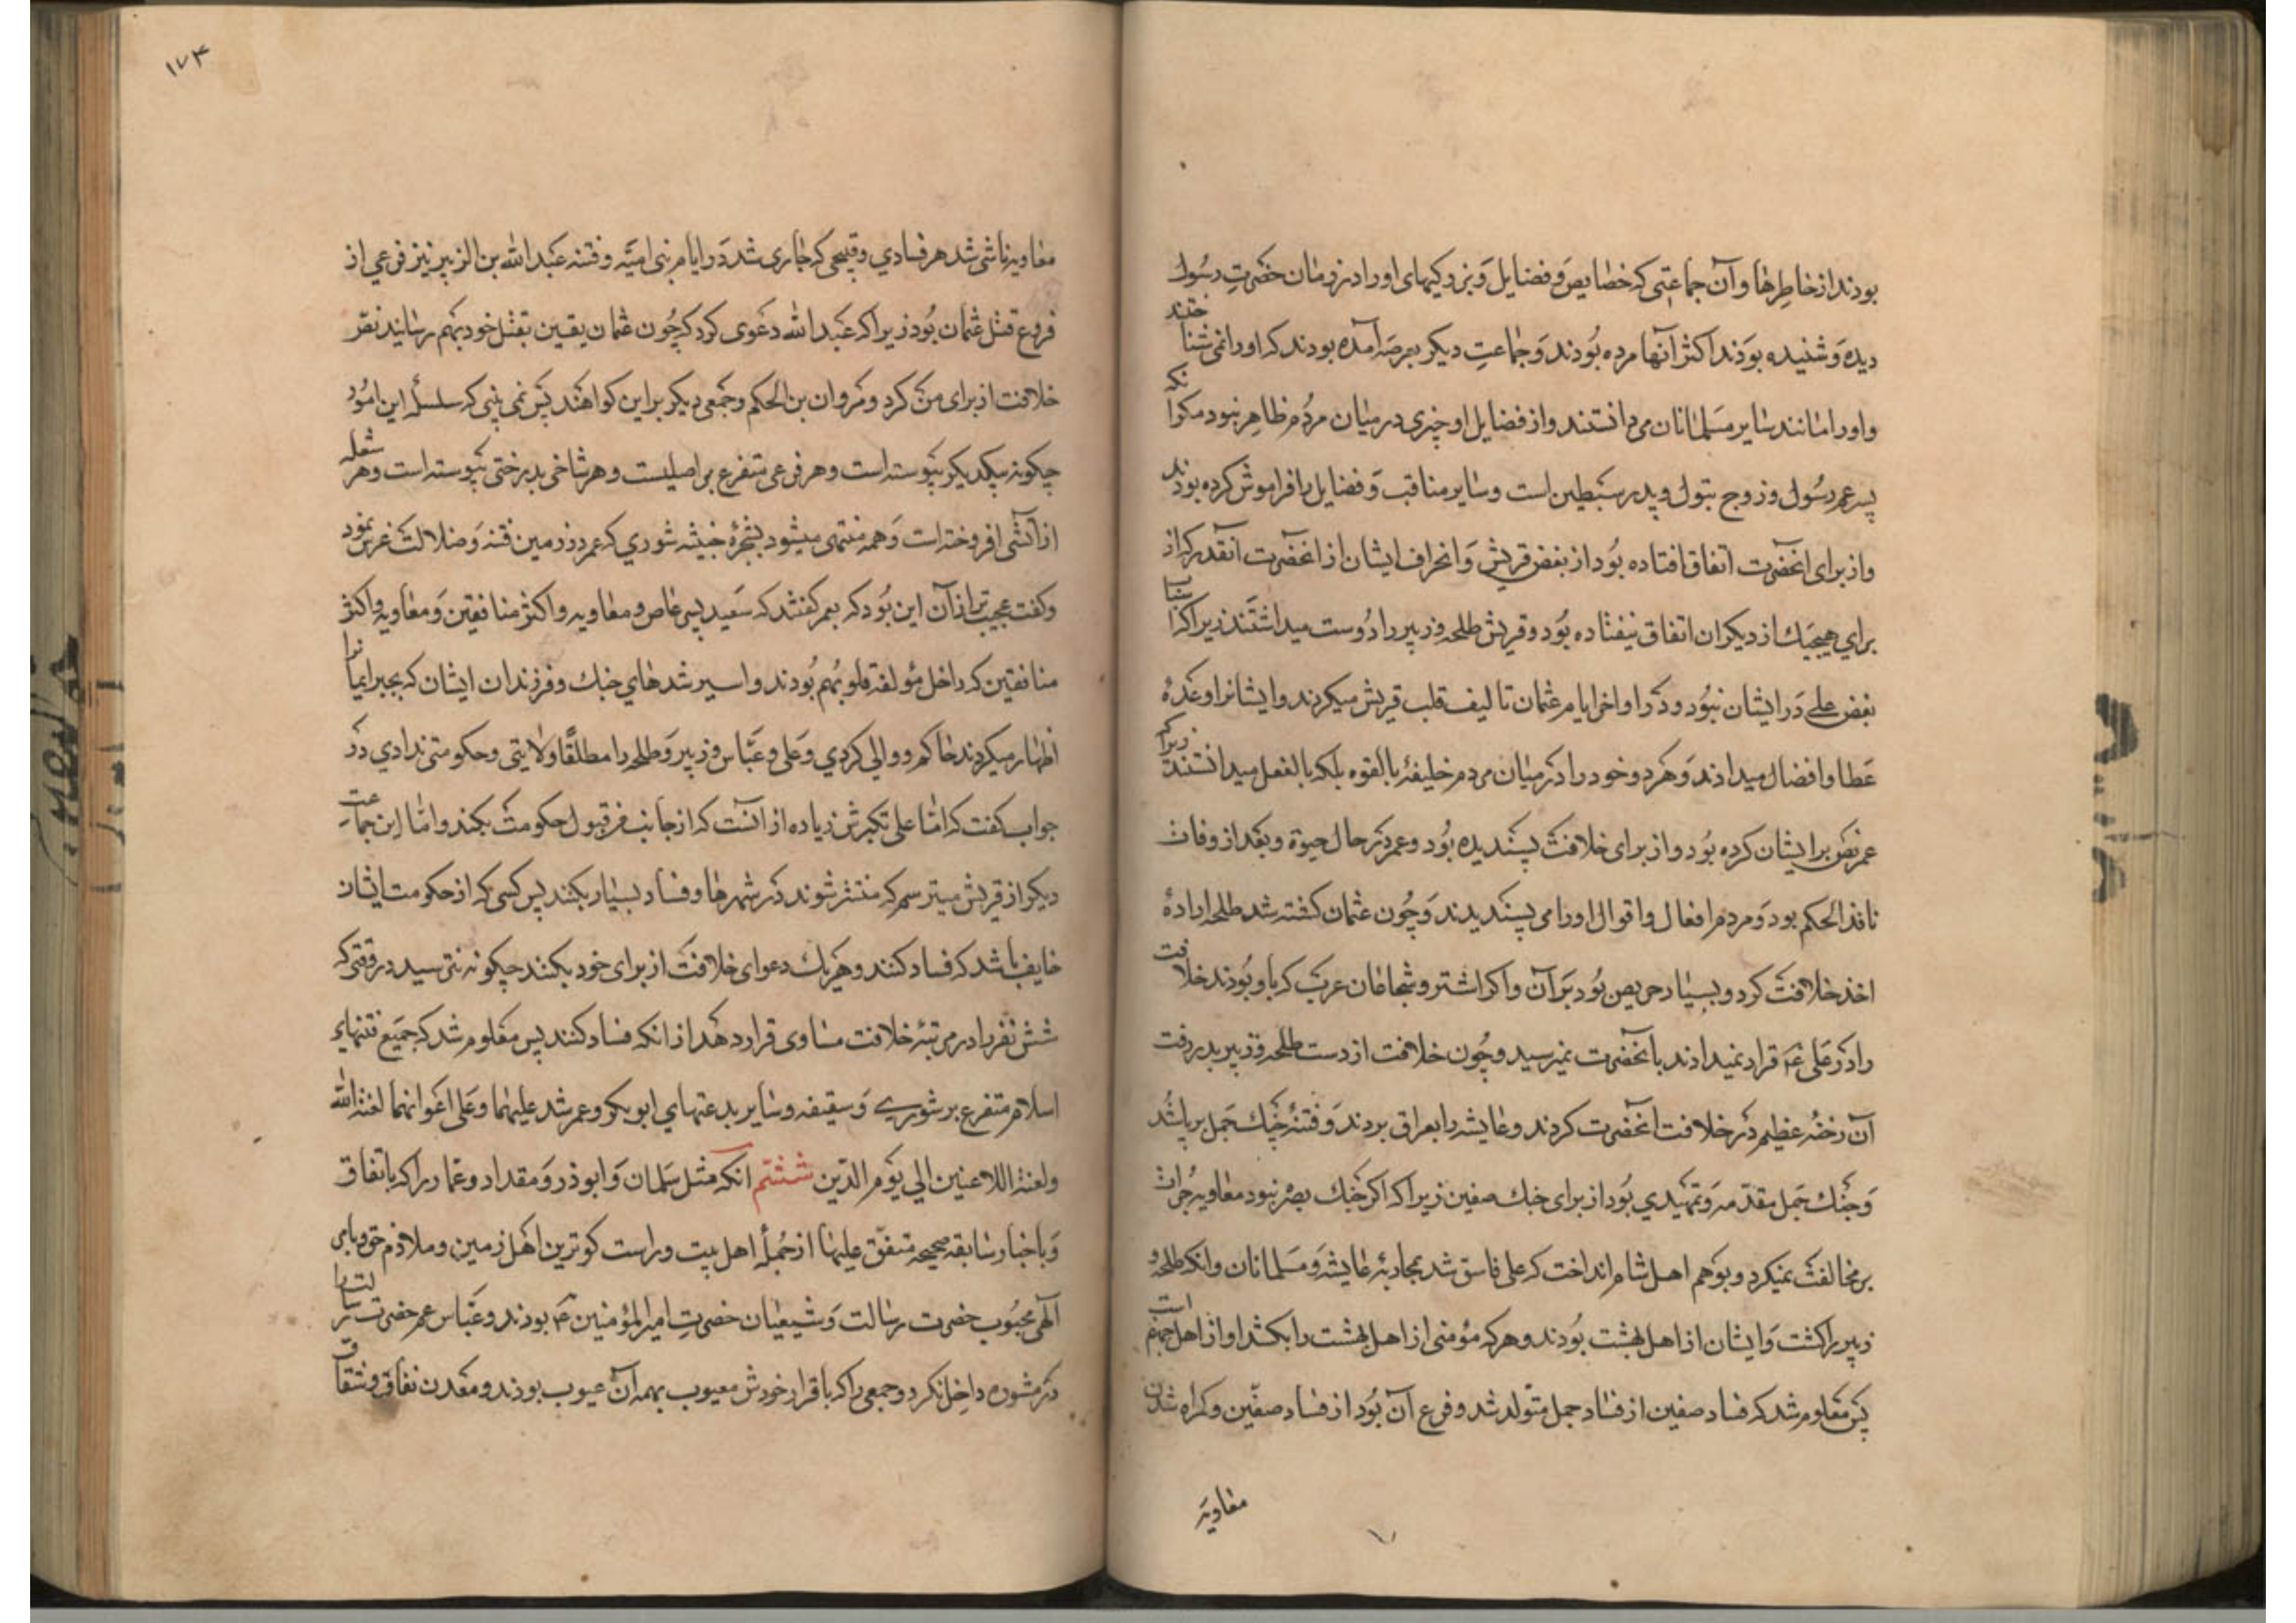 بودند از خاطرها و آن جماعتی که خصایص و فضایل و نزدیکیهای او را در زمان حضرت رسول
دیده و شنیده بودند اکثر آنها مرده بودند و جماعت دیکر بعرصه آمده بودند که او را نمی شناختند
و او را مانند سایر مسلمانان می دانستند و از فضایل او چیزی در میان مردم ظاهر نبود مکر آنکه
پسر عم رسول و زوج بتول و پدر سبطین است و سایر مناقب و فضایل را فراموش کرده بودند
و از برای آنحضرت اتفاق افتاده بود از بغض قریش و انحراف ایشان از آنحضرت آنقدر که از
برای هیچیک از دیکران اتفاق نیفتاده بود و قریش طلحه و زبیر را دوست میداشتند زیرا که اسباب
بغض علی در ایشان نبود و در اواخر ایام عثمان تالیف قلب قریش میکردند و ایشانرا وعدهٔ
عطا و افضال میدادند و هر دو خود را در میان مردم خلیفهٔ بالقوه بلکه بالفعل میدانستند زیرا که
عمر نص بر ایشان کرده بود و از برای خلافت پسندیده بود و عمر در حال حیوة و بعد از وفات
نافذ الحکم بود و مردم افعال و اقوال او را می پسندیدند و چون عثمان کشته شد طلحه ارادهٔ
اخذ خلافت کرد و بسیار حریص بود بر آن و اکر اشتر و شجاعان عرب که با او بودند خلافت
را در علی ع قرار نمیدادند بآنحضرت نمیرسید و چون خلافت از دست طلحه و زبیر بدر رفت
آن رخنه عظیم در خلافت آنحضرت کردند و عایشه را بعراق بردند و فتنهٔ جنك جمل بر پا شد
و جنك جمل مقدمه و تمهیدی بود از برای جنك صفین زیرا که اکر جنك بصره نبود معاویه جرات
بر مخالفت نمیکرد و بوهم اهل شام انداخت که علی فاسق شد بمحاربهٔ عایشه و مسلمانان و آنکه طلحه و
زبیر را کشت و ایشان از اهل بهشت بودند و هر که مؤمنی از اهل بهشت را بکشد او از اهل جهنم است
پس معلوم شد که فساد صفین از فساد جمل متولد شد و فرع آن بود از فساد صفین و کمراه شدن
معاویه
۱۷۴
معاویه ناشی شد هر فسادی و قبیحی که جاری شد در ایام بنی امیه و فتنه عبد الله بن الزبیر نیز فرعی از
فروع قتل عثمان بود زیرا که عبد الله دعوی کرد که چون عثمان یقین بقتل خود بهم رسانید نص
خلافت از برای من کرد و مروان بن الحکم و جمعی دیکر بر این کواهند پس نمی بینی که سلسلهٔ این امور
چکونه بیکدیکر پیوسته است و هر فرعی متفرع بر اصلیست و هر شاخی بدرختی پیوسته است و هر شعله
از آتشی افروخته است و همه منتهی میشود بشجرهٔ خبیثه شوری که عمر در زمین فتنه و ضلالت غرس نمود
و کفت عجیب تر از آن این بود که بعمر کفتند که سعید پسر عاص و معاویه و اکثر منافقین و معاویه و اکثر
منافقین که داخل مؤلفة قلوبهم بودند و اسیر شدهای جنك و فرزندان ایشان که بجبر ایمانرا
اظهار میکردند حاکم و والی کردی و علی و عباس و زبیر و طلحه را مطلقًا ولایتی و حکومتی ندادی در
جواب کفت که اما علی تکبرش زیاده از آنست که از جانب من قبول حکومت بکند و اما این جماعت
دیکر از قریش میترسم که منتشر شوند در شهرها و فساد بسیار بکنند پس کسی که از حکومت ایشان
خایف باشد که فساد کنند و هر یك دعوای خلافت از برای خود بکنند چکونه نترسید در وقتی که
شش نفر را در مرتبهٔ خلافت مساوی قرار دهد از آنکه فساد کنند پس معلوم شد که جمیع فتنهای
اسلام متفرع بر شوری و سقیفه و سایر بدعتهای ابوبکر و عمر شد علیهما و علی اعوانهما لعنة الله
و لعنة اللاعنین الی یوم الدین ششم آنکه مثل سلمان و ابوذر و مقداد و عمار را که باتفاق
و باخبار سابقه صحیحه متفق علیها از جملهٔ اهل بیت و راست کوترین اهل زمین و ملازم حق و بامر
الهی محبوب حضرت رسالت و شیعیان حضرت امیر المؤمنین ع بودند و عباس عم حضرت رسالت را
در مشوره داخل نکرد و جمعی را که باقرار خودش معیوب بهمه آن عیوب بودند و معدن نفاق و شقاق